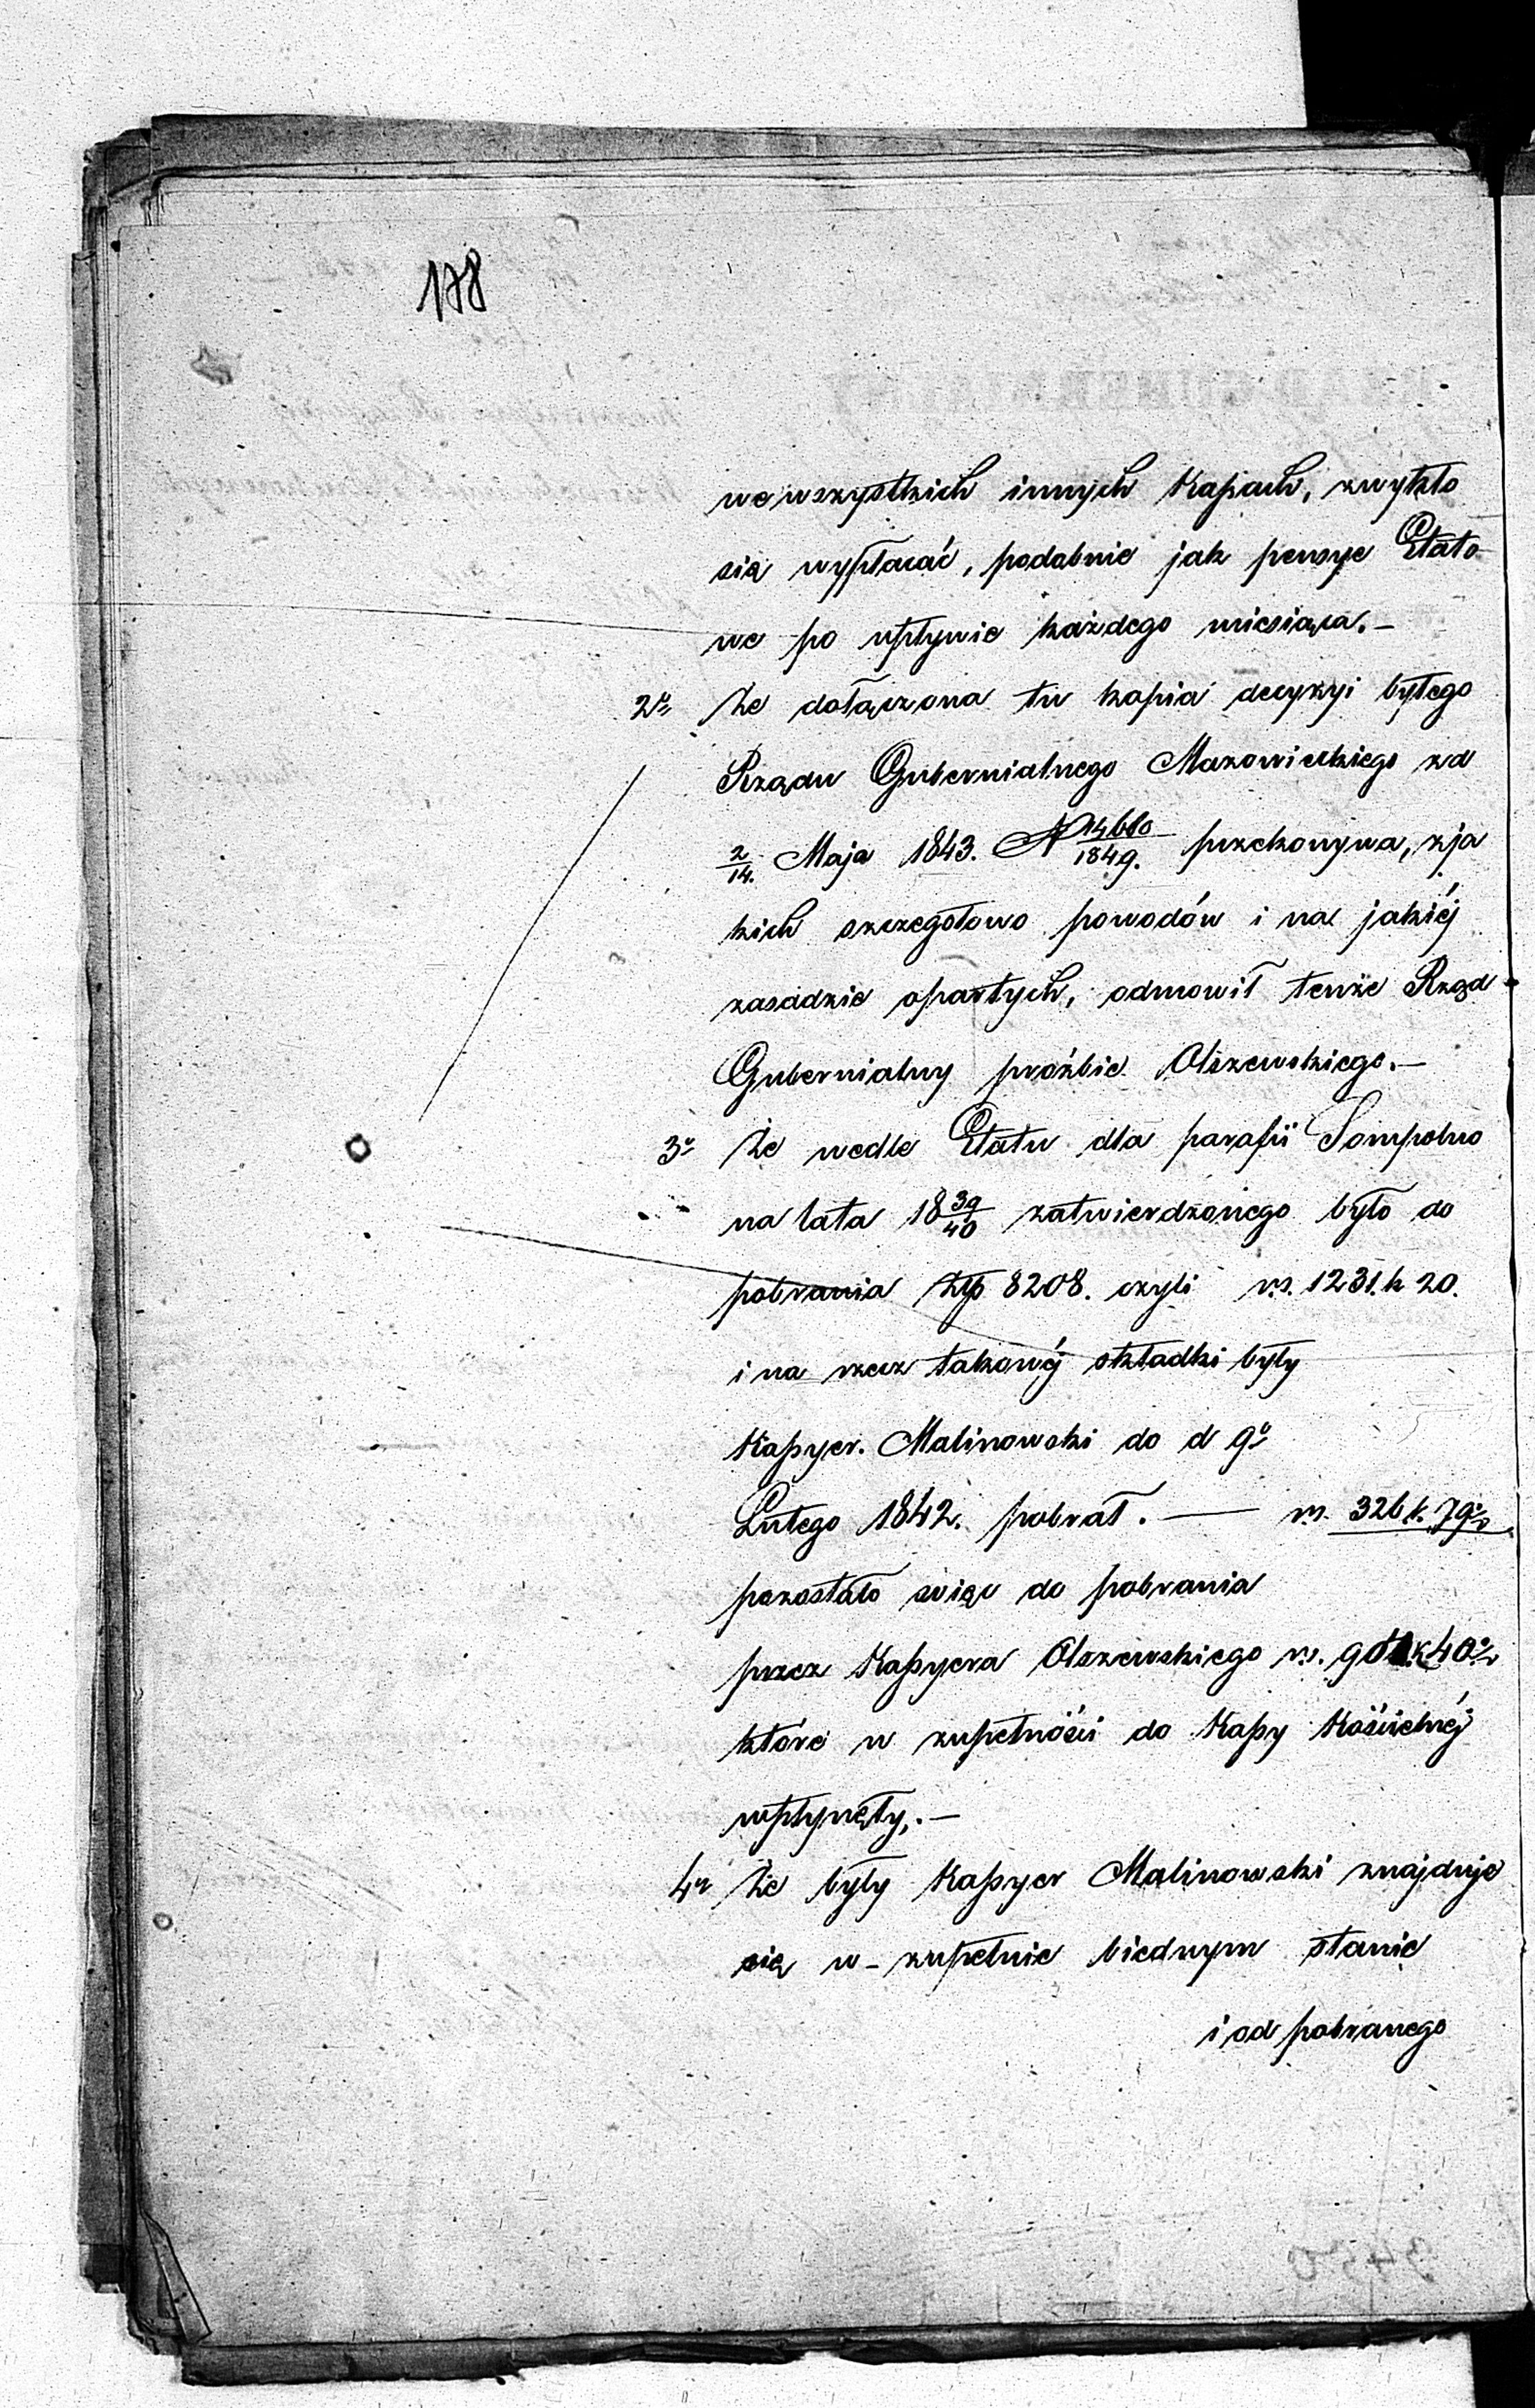 178
we wszystkich innych Kaßach, zwykło
się wypłacać, podobnie jak pensye Etato
we po upływie każdego miesiąca.—
2o Że dołączona tu kopia decyzyi byłego
Rządu Gubernialnego Mazowieckiego z d
2/14. Maja 1843. N 14660/1849. przekonywa, z ja
kich szczegółowo powodów i na jakiéj
zasadzie opartych, odmówił tenże Rząd
Gubernialny prośbie Olszewskiego.—
3o Że wedle Etatu dla parafii Sompolno
na lata 18 39/40 zatwierdzonego było do
pobrania Złp 8208. czyli rs. 1231. k 20.
i na rzecz takowéj składki były
Kaßyer. Malinowski do d 9o
Lutego 1842. pobrał. — rs. 326 k. 79½
pozostało więc do pobrania
przez Kaßyera Olszewskiego rs. 904 k 40½
które w zupełności do Kaßy Kościelnéj
wpłynęły.—
4o Że były Kaßyer Malinowski znajduje
się w zupełnie biednym stanie
i od pobranego